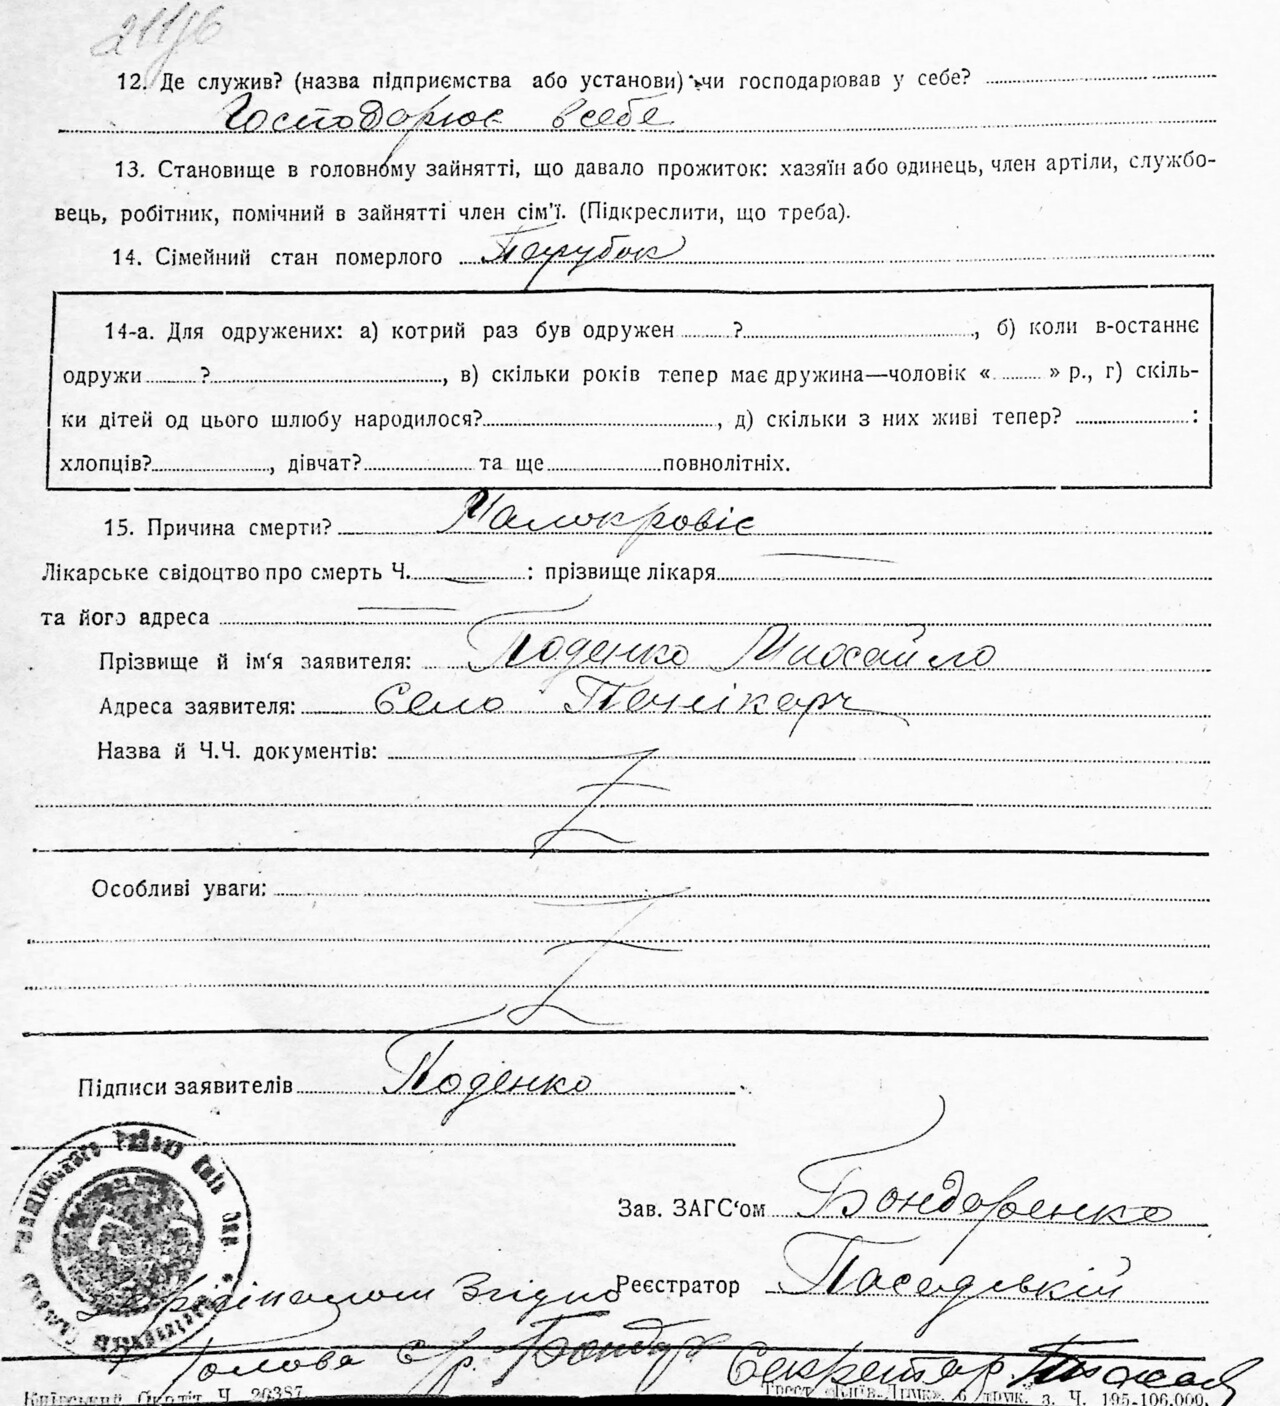 211/6
12. Де служив? (назва підприємства або установи) чи господарював у себе?
Господарює в себе
13. Становище в головному зайнятті, що давало прожиток: хазяїн або одинець, член артіли, службо-
вець, робітник, помічний в зайнятті член сім'ї. (Підкреслити, що треба).
14. Сімейний стан померлого Парубок
14-а. Для одружених: а) котрий раз був одружен ? , б) коли в-останнє
одружи ? , в) скільки років тепер має дружина—чоловік « » р., г) скіль-
ки дітей од цього шлюбу народилося? , д) скільки з них живі тепер? :
хлопців? , дівчат? та ще повнолітніх.
15. Причина смерти? Малокровіє
Лікарське свідоцтво про смерть Ч. : прізвище лікаря
та його адреса
Прізвище й ім'я заявителя: Поденко Михайло
Адреса заявителя: Село
Назва й Ч.Ч. документів:
Особливі уваги:
Підписи заявителів Поденко
Зав. ЗАГС'ом Бондаренко
Реєстратор
З орігіналом Згідно
Голова с/р. Бонда Секретар
Київський Окрліт Ч. 20387. Трест «Київ-Друк», 6 друк. з. Ч. 195-106.000.